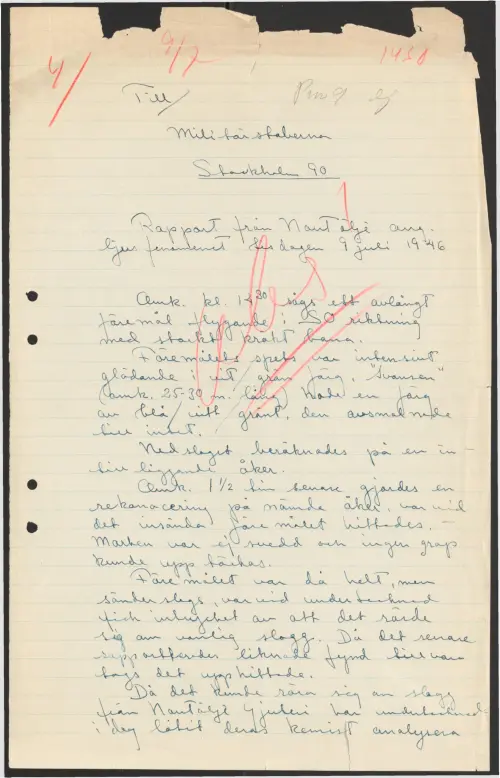 4/ 9/7 1430
Till
Militärstaberna
Stockholm 90
Rapport från Norrtälje ang.
ljusfenomenet tisdagen 9 juli 1946
Omk. kl. 14³⁰ sågs ett avlångt
föremål flygande i SO riktning
med starkt krökt bana.
Föremålets spets var intensivt
glödande i vit grön färg, "Svansen"
(omk. 25-30 m. lång) hade en färg
av blå/vitt grönt, den avsmalnade
till intet.
Nedslaget beräknades på en in
till liggande åker.
Omk. 1½ tim senare gjordes en
rekonocering på nämda åker, varvid
det insända föremålet hittades. —
Marken var ej svedd och ingen grop
kunde upptäckas.
Föremålet var då helt, men
sönderslogs, varvid undertecknad
fick intrycket av att det rörde
sig om vanlig slagg. Då det senare
rapporterades liknade fynd tillvara
togs det upphittade.
Då det kunde röra sig om slagg
från Norrtälje Gjuteri har undertecknad
i dag låtit deras kemist analysera